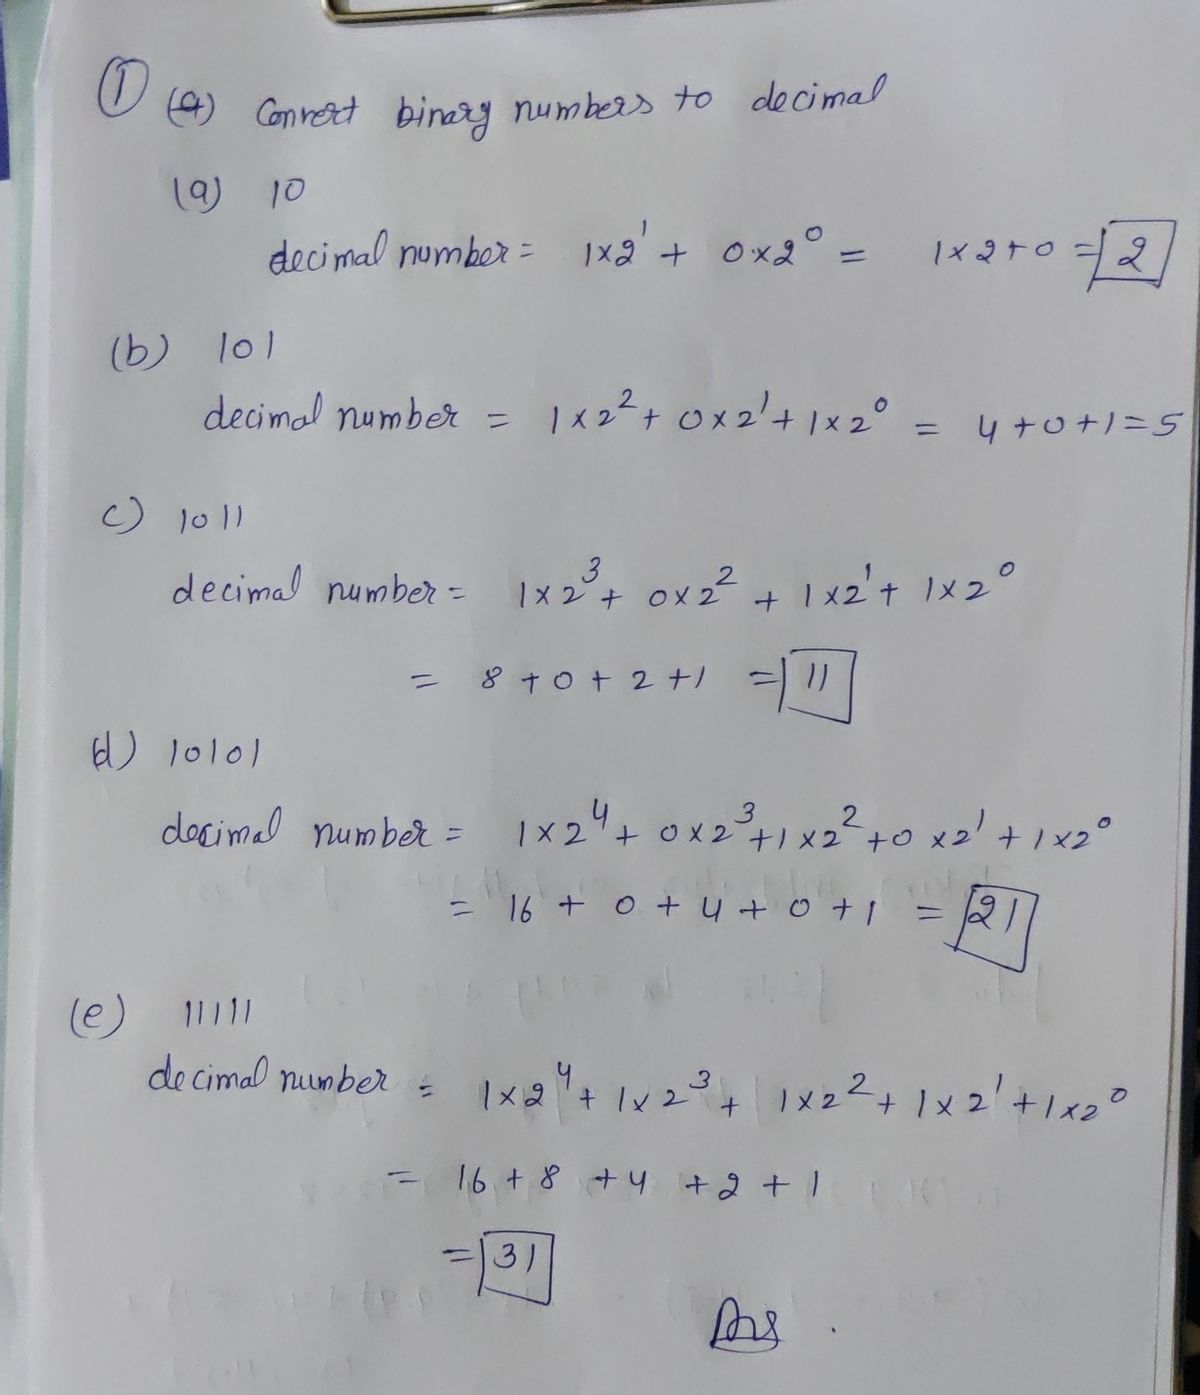 ① (a) Convert binary numbers to decimal
(a) 10
decimal number = 1×2¹ + 0×2⁰ = 1×2+0 = 2
(b) 101
decimal number = 1×2² + 0×2¹ + 1×2⁰ = 4+0+1=5
c) 1011
decimal number = 1×2³ + 0×2² + 1×2¹ + 1×2⁰
= 8+0+2+1 = 11
d) 10101
decimal number = 1×2⁴ + 0×2³ + 1×2² + 0×2¹ + 1×2⁰
= 16 + 0 + 4 + 0 + 1 = 21
(e) 11111
decimal number = 1×2⁴ + 1×2³ + 1×2² + 1×2¹ + 1×2⁰
= 16 + 8 + 4 + 2 + 1
= 31
Ans.